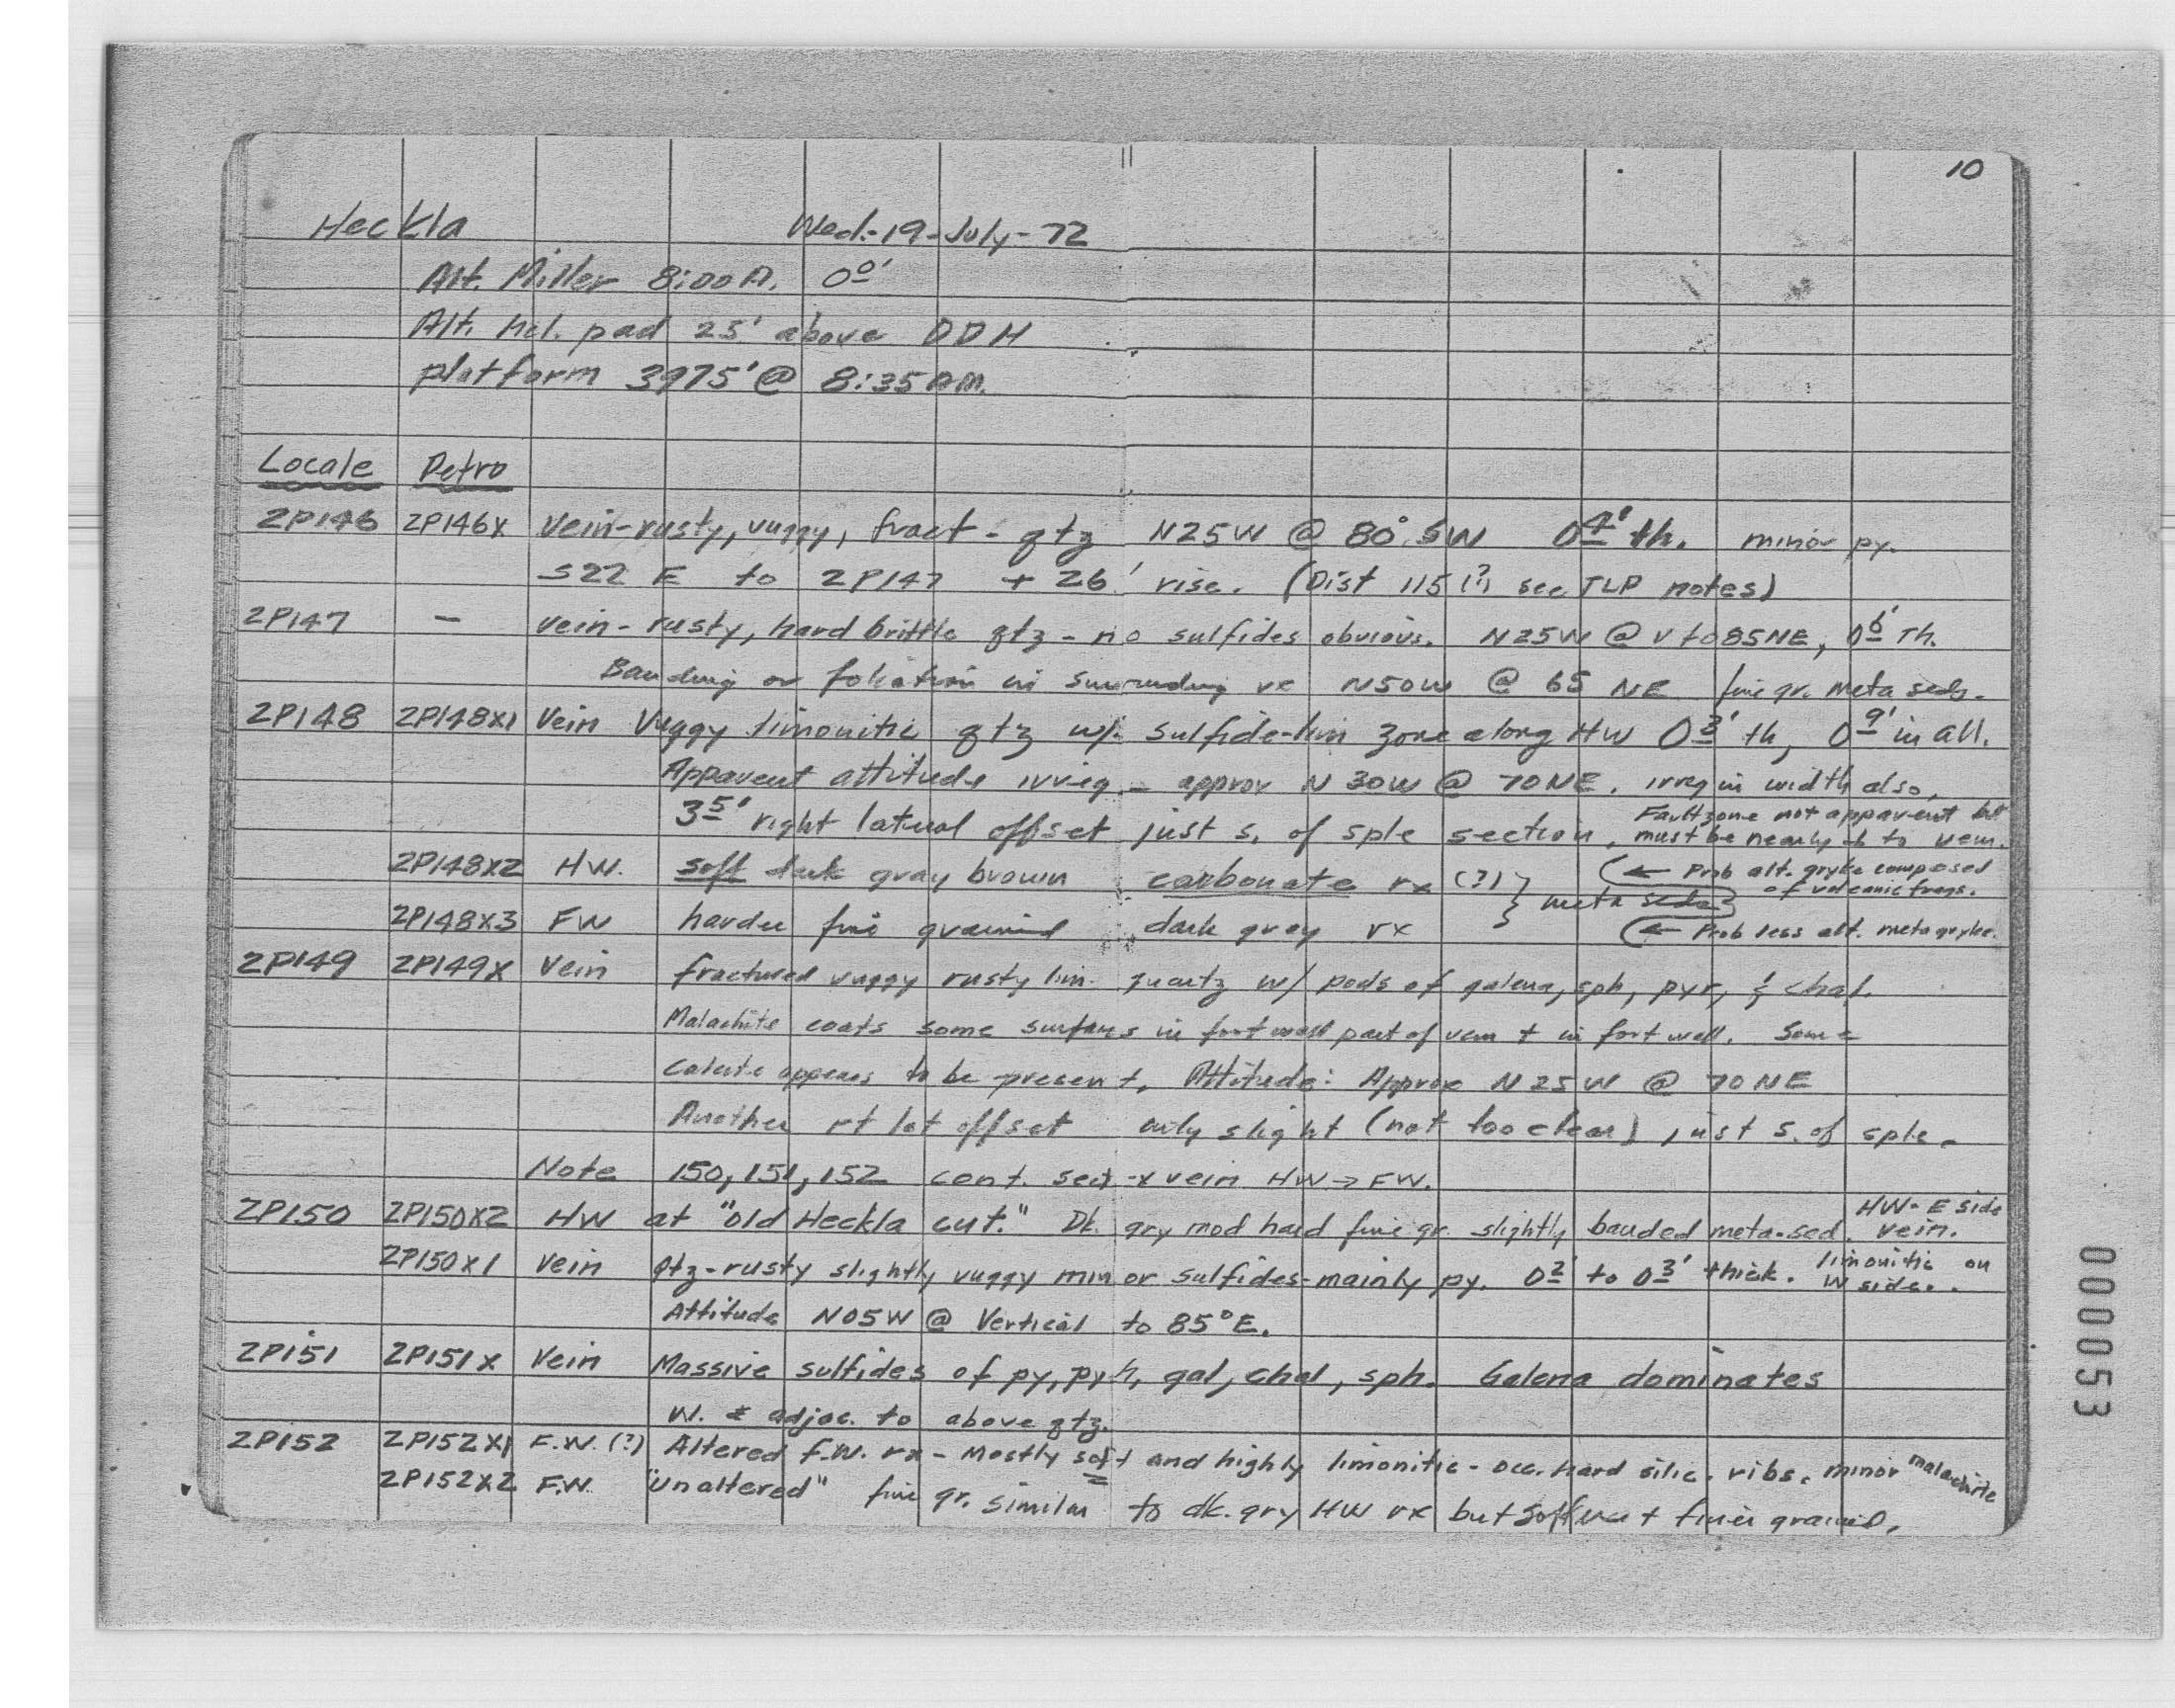 10
Heckla Wed.-19-July-72
Alt. Miller 8:00 A. 0⁰'
Alt. hel. pad 25' above DDH
platform 3975' @ 8:35 AM.
Locale Petro
2P146 2P146X Vein-rusty, vuggy, fract - qtz N25W @ 80° SW 0⁴' th. minor py.
S22 E to 2P147 + 26' rise. (Dist 115(?) see TLP notes)
2P147 — vein - rusty, hard brittle qtz - no sulfides obvious. N25W @ V to 85NE, 0⁶' Th.
Banding or foliation in surrounding rx N50W @ 65 NE fine gr. meta seds.
2P148 2P148X1 Vein Vuggy limonitic qtz w/ sulfide-lim zone along HW 0³' th, 0⁹' in all.
Apparent attitude irreg - approx N 30W @ 70NE. irreg in width also,
3⁵' right lateral offset just s. of sple section, Fault zone not apparent but
must be nearly ⊥ to vein.
2P148X2 HW. soft dark gray brown carbonate rx (?) } meta seds } (← Prob alt. gryke composed
of volcanic frags.
2P148X3 FW harder fine grained dark gray rx (← Prob less alt. meta gryke.
2P149 2P149X Vein fractured vuggy rusty lim. quartz w/ pods of galena, sph, pyr, & chal.
Malachite coats some surfaces in foot wall part of vein + in foot wall. Some
calcite appears to be present. Attitude: Approx N25W @ 70NE
Another rt lat offset only slight (not too clear) just s. of sple.
Note 150, 151, 152 cont. sect -x vein HW → FW.
2P150 2P150X2 HW at "old Heckla cut." Dk. gry mod hard fine gr. slightly banded meta-sed. HW - E side
vein.
2P150X1 Vein Qtz-rusty slightly vuggy minor sulfides-mainly py. 0²' to 0³' thick. limonitic on
W side.
Attitude N05W @ Vertical to 85°E.
2P151 2P151X Vein Massive sulfides of py, pyh, gal, chal, sph. Galena dominates
W. & adjac. to above qtz.
2P152 2P152X1 F.W. (?) Altered F.W. rx - Mostly soft and highly limonitic - occ. hard silic. ribs. minor malachite
2P152X2 F.W. "unaltered" fine gr. similar to dk. gry HW rx but softer + finer grained.
000053